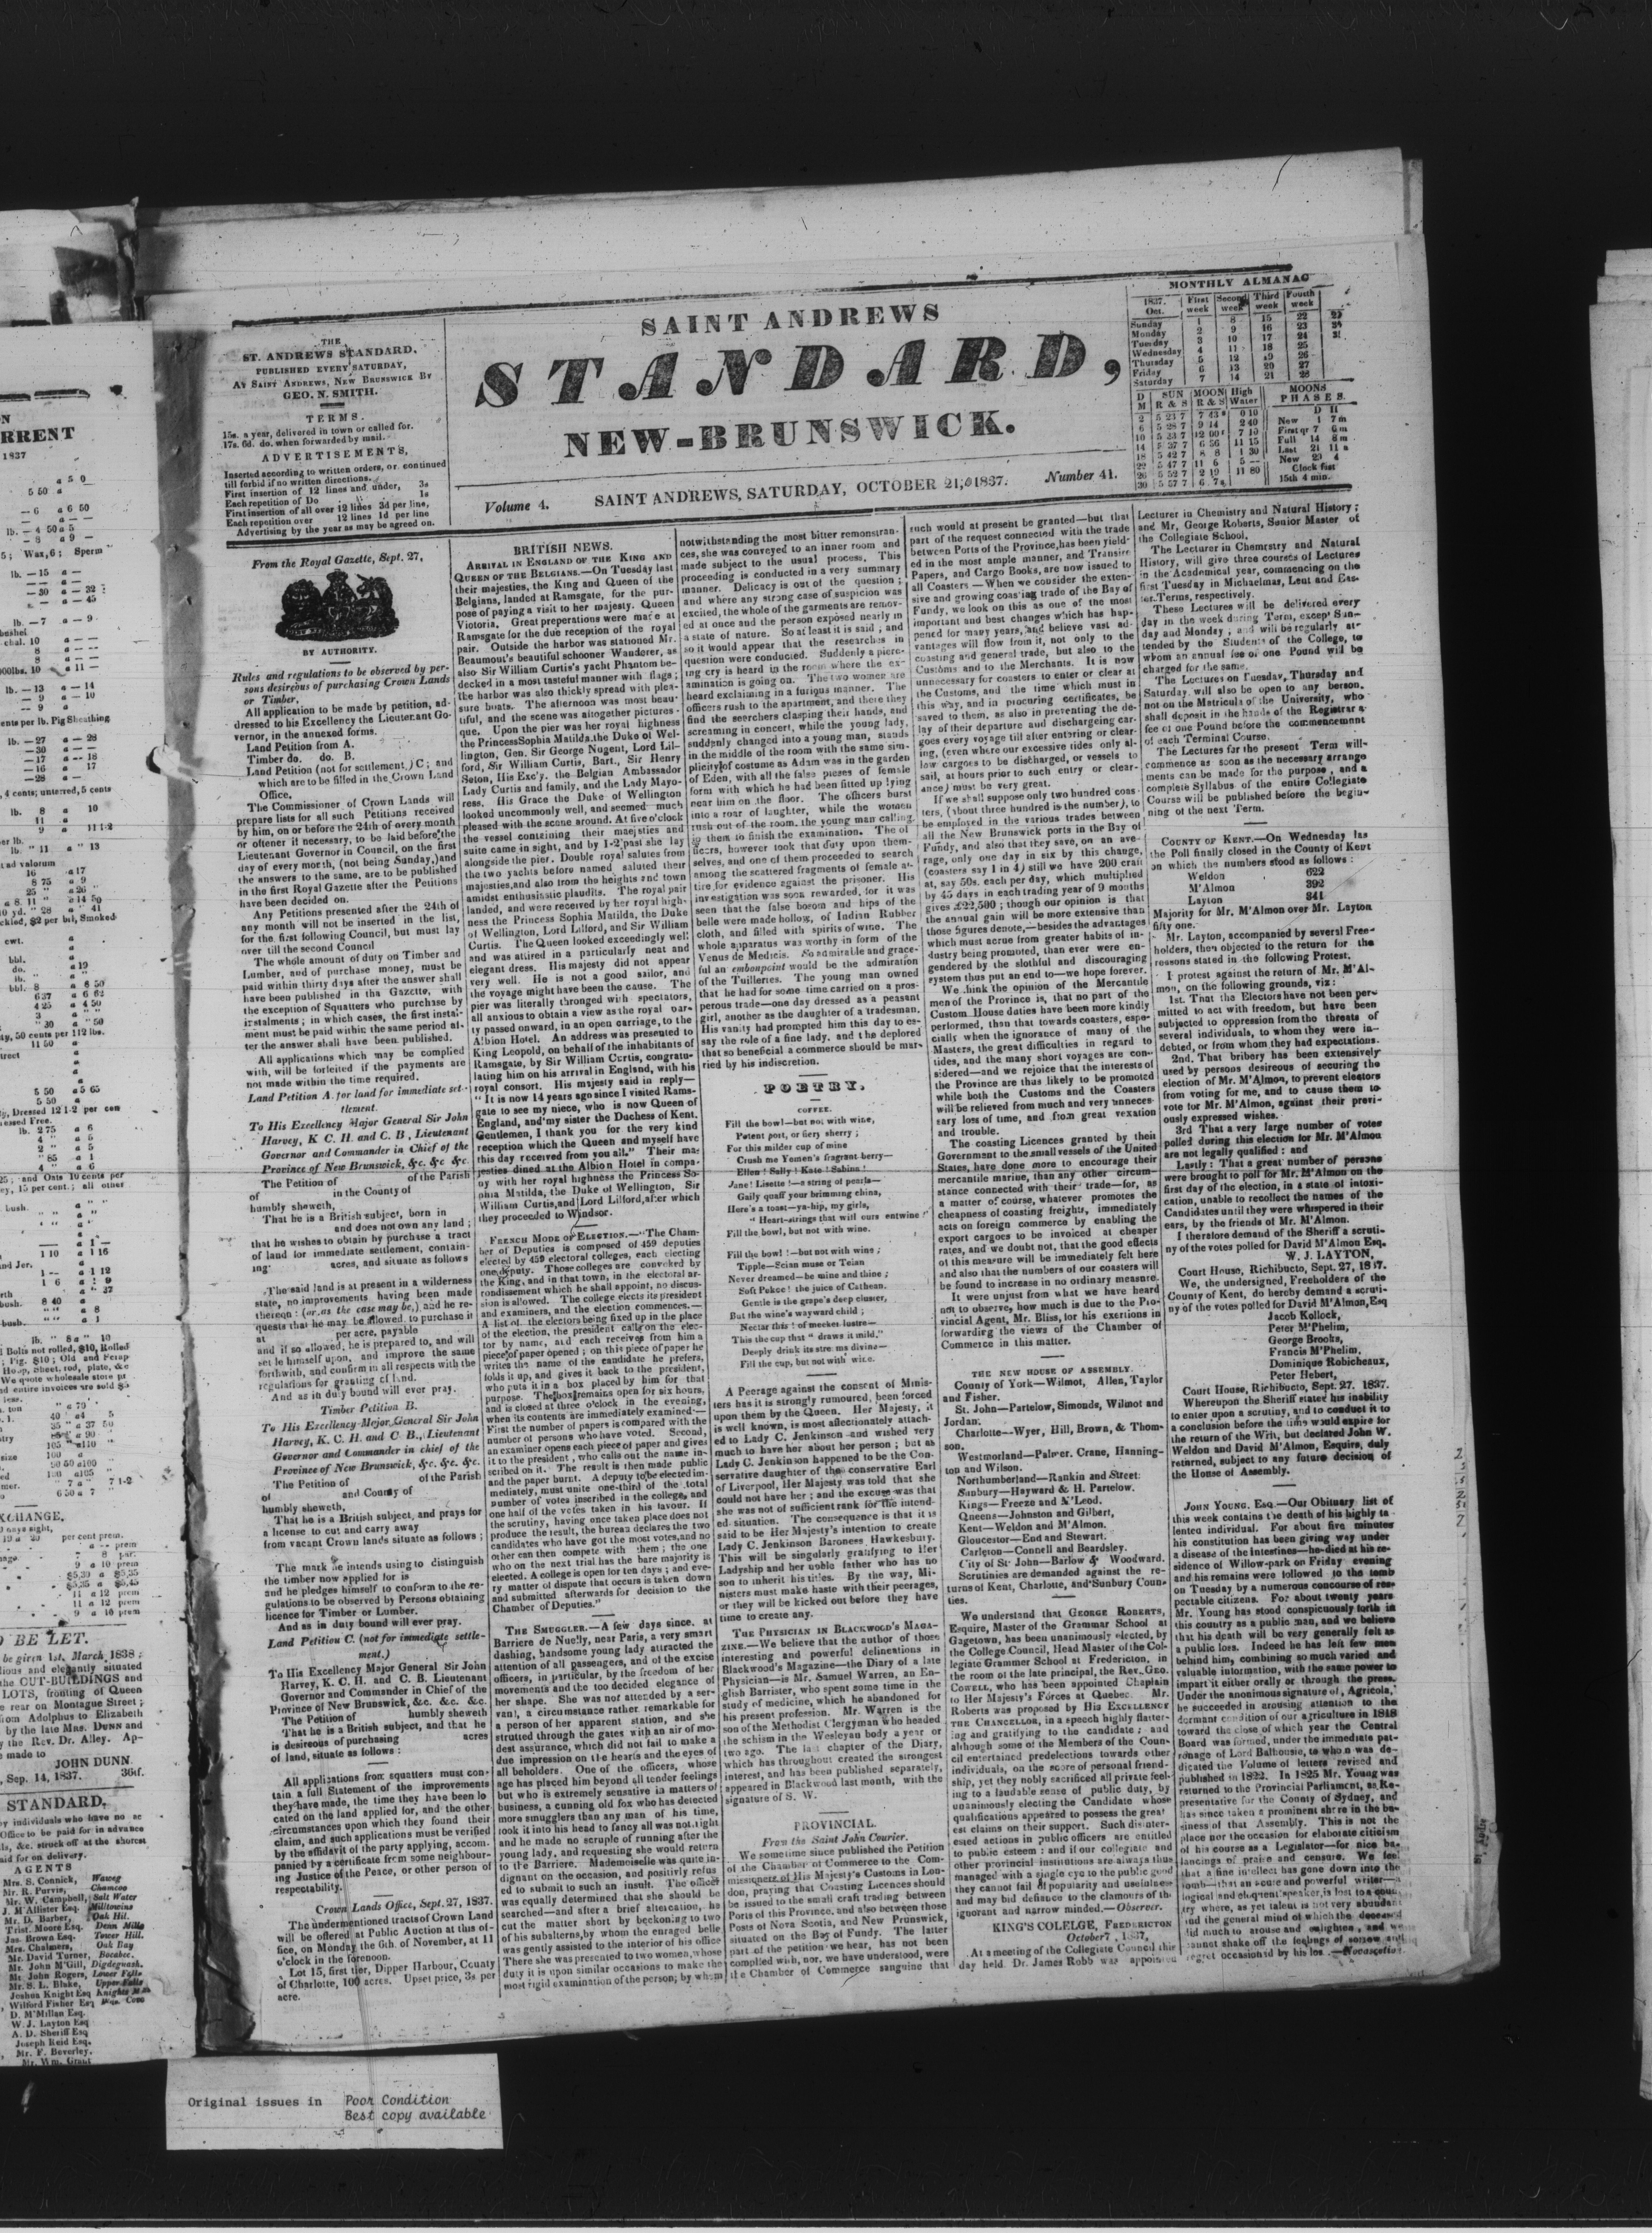 THE
ST. ANDREWS STANDARD,
PUBLISHED EVERY SATURDAY,
AT SAINT ANDREWS, NEW BRUNSWICK BY
GEO. N. SMITH.
TERMS.
15s. a year, delivered in town or called for.
17s. 6d. do. when forwarded by mail.
ADVERTISEMENTS,
Inserted according to written orders, or continued
till forbid if no written directions.
First insertion of 12 lines and under, 3s
Each repetition of Do 1s
First insertion of all over 12 lines 3d per line,
Each repetition over 12 lines 1d per line
Advertising by the year as may be agreed on.
SAINT ANDREWS
STANDARD,
NEW-BRUNSWICK.
Volume 4. SAINT ANDREWS, SATURDAY, OCTOBER 21, 1837. Number 41.
MONTHLY ALMANAC
From the Royal Gazette, Sept. 27,
BY AUTHORITY.
Rules and regulations to be observed by per-
sons desireous of purchasing Crown Lands
or Timber.
All application to be made by petition, ad-
dressed to his Excellency the Lieutenant Go-
vernor, in the annexed forms.
Land Petition from A.
Timber do. do. B.
Land Petition (not for settlement,) C; and
which are to be filled in the Crown Land
Office.
The Commissioner of Crown Lands will
prepare lists for all such Petitions received
by him, on or before the 24th of every month
or oftener it necessary, to be laid before the
Lieutenant Governor in Council, on the first
day of every month, (not being Sunday,) and
the answers to the same, are to be published
in the first Royal Gazette after the Petitions
have been decided on.
Any Petitions presented after the 24th of
any month will not be inserted in the list,
for the first following Council, but must lay
over till the second Council
The whole amount of duty on Timber and
Lumber, and of purchase money, must be
paid within thirty days after the answer shall
have been published in the Gazette, with
the exception of Squatters who purchase by
instalments; in which cases, the first instal-
ment must be paid within the same period af-
ter the answer shall have been published.
All applications which may be complied
with, will be forfeited if the payments are
not made within the time required.
Land Petition A. for land for immediate set-
tlement.
To His Excellency Major General Sir John
Harvey, K C. H. and C. B, Lieutenant
Governor and Commander in Chief of the
Province of New Brunswick, &c. &c &c.
The Petition of of the Parish
of in the County of
humbly sheweth,
That he is a British subject, born in
and does not own any land;
that he wishes to obtain by purchase a tract
of land for immediate settlement, contain-
ing acres, and situate as follows
The said land is at present in a wilderness
state, no improvements having been made
thereon: (or as the case may be,) and he re-
quests that he may be allowed to purchase it
at per acre, payable
and if so allowed, he is prepared to, and will
set le himself upon, and improve the same
forthwith, and confirm in all respects with the
regulations for granting of land.
And as in duty bound will ever pray.
Timber Petition B.
To His Excellency Major General Sir John
Harvey, K. C. H. and C. B., Lieutenant
Governor and Commander in chief of the
Province of New Brunswick, &c. &c. &c.
The Petition of of the Parish
of and County of
humbly sheweth,
That he is a British subject, and prays for
a license to cut and carry away
from vacant Crown lands situate as follows;
The mark he intends using to distinguish
the timber now applied for is
and he pledges himself to conform to the re-
gulations to be observed by Persons obtaining
licence for Timber or Lumber.
And as in duty bound will ever pray.
Land Petition C. (not for immediate settle-
ment.)
To His Excellency Major General Sir John
Harvey, K. C. H. and C. B. Lieutenant
Governor and Commander in Chief of the
Province of New Brunswick, &c. &c. &c.
The Petition of humbly sheweth
That he is a British subject, and that he
is desireous of purchasing acres
of land, situate as follows:
All applications from squatters must con-
tain a full Statement of the improvements
they have made, the time they have been lo
cated on the land applied for, and the other
circumstances upon which they found their
claim, and such applications must be verified
by the affidavit of the party applying, accom.
panied by a certificate from some neighbour-
ing Justice of the Peace, or other person of
respectability.
Crown Lands Office, Sept. 27, 1837.
The undermentioned tracts of Crown Land
will be offered at Public Auction at this of-
fice, on Monday the 6th. of November, at 11
o'clock in the forenoon.
Lot 15, first tier, Dipper Harbour, County
of Charlotte, 100 acres. Upset price, 3s per
acre.
BRITISH NEWS.
ARRIVAL IN ENGLAND OF THE KING AND
QUEEN OF THE BELGIANS.—On Tuesday last
their majesties, the King and Queen of the
Belgians, landed at Ramsgate, for the pur-
pose of paying a visit to her majesty. Queen
Victoria, Great preperations were mace at
Ramsgate for the due reception of the royal
pair. Outside the harbor was stationed Mr.
Beaumout's beautiful schooner Wanderer, as
also Sir William Curtis's yacht Phantom be-
decked in a most tasteful manner with flags;
the harbor was also thickly spread with plea-
sure boats. The afternoon was most beau-
tiful, and the scene was altogether pictures-
que. Upon the pier was her royal highness
the Princess Sophia Matilda, the Duke of Wel-
lington, Gen. Sir George Nugent, Lord Lil-
ford, Sir William Curtis, Bart., Sir Henry
Seton, His Exc'y. the Belgian Ambassador
Lady Curtis and family, and the Lady Mayo-
ress. His Grace the Duke of Wellington
looked uncommonly well, and seemed much
pleased with the scene around. At five o'clock
the vessel containing their maejsties and
suite came in sight, and by 1-2 past she lay
alongside the pier. Double royal salutes from
the two yachts before named saluted their
majesties, and also from the heights and town
amidst enthusiastic plaudits. The royal pair
landed, and were received by her royal high-
ness the Princess Sophia Matilda, the Duke
of Wellington, Lord Lilford, and Sir William
Curtis. The Queen looked exceedingly well
and was attired in a particularly neat and
elegant dress. His majesty did not appear
very well. He is not a good sailor, and
the voyage might have been the cause. The
pier was literally thronged with spectators,
all anxious to obtain a view as the royal par-
ty passed onward, in an open carriage, to the
Albion Hotel. An address was presented to
King Leopold, on behalf of the inhabitants of
Ramsgate, by Sir William Curtis, congratu-
lating him on his arrival in England, with his
royal consort. His majesty said in reply—
"It is now 14 years ago since I visited Rams-
gate to see my niece, who is now Queen of
England, and my sister the Duchess of Kent.
Gentlemen, I thank you for the very kind
reception which the Queen and myself have
this day received from you all." Their ma-
jesties dined at the Albion Hotel in compa-
ny with her royal highness the Princess So-
phia Matilda, the Duke of Wellington, Sir
William Curtis, and Lord Lilford, after which
they proceeded to Windsor.
FRENCH MODE OF ELECTION.—"The Cham-
ber of Deputies is composed of 459 deputies
elected by 459 electoral colleges, each electing
one deputy. Those colleges are convoked by
the King, and in that town, in the electoral ar-
rondissement which he shall appoint, no discus-
sion is allowed. The college elects its president
and examiners, and the election commences.—
A list of the electors being fixed up in the place
of the election, the president calls on the elec-
tor by name, and each receives from him a
piece of paper opened; on this piece of paper he
writes the name of the candidate he prefers,
folds it up, and gives it back to the president,
who puts it in a box placed by him for that
purpose. The box remains open for six hours,
and is closed at three o'clock in the evening,
when its contents are immediately examined—
First the number of papers is compared with the
number of persons who have voted. Second,
an examiner opens each piece of paper and gives
it to the president, who calls out the name in-
scribed on it. The result is then made public
and the paper burnt. A deputy to be elected im-
mediately, must unite one-third of the total
number of votes inscribed in the college, and
one half of the votes taken in his favour. If
the scrutiny, having once taken place does not
produce the result, the bureau declares the two
candidates who have got the most votes, and no
other can then compete with them; the one
who on the next trial has the bare majority is
elected. A college is open for ten days; and eve-
ry matter of dispute that occurs is taken down
and submitted afterwards for decision to the
Chamber of Deputies."
THE SMUGGLER.—A few days since, at
Barriere de Nuelly, near Paris, a very smart
dashing, handsome young lady attracted the
attention of all passengers, and of the excise
officers, in particular, by the freedom of her
movements and the too decided elegance of
her shape. She was not attended by a ser-
vant, a circumstance rather remarkable for
a person of her apparent station, and she
strutted through the gates with an air of mo-
dest assurance, which did not fail to make a
due impression on the hearts and the eyes of
all beholders. One of the officers, whose
age has placed him beyond all tender feelings
but who is extremely sensative in matters of
business, a cunning old fox who has detected
more smugglers than any man of his time,
took it into his head to fancy all was not right
and he made no scruple of running after the
young lady, and requesting she would return
to the Barriere. Mademoiselle was quite in-
dignant on the occasion, and positively refus
ed to submit to such an insult. The officer
was equally determined that she should be
searched—and after a brief altercation, he
cut the matter short by beckoning to two
of his subalterns, by whom the enraged belle
was gently assisted to the interior of his office
There she was presented to two women, whose
duty it is upon similar occasions to make the
most rigid examination of the person; by whom
notwithstanding the most bitter remonstran-
ces, she was conveyed to an inner room and
made subject to the usual process. This
proceeding is conducted in a very summary
manner. Delicacy is out of the question;
and where any strong case of suspicion was
excited, the whole of the garments are remov-
ed at once and the person exposed nearly in
a state of nature. So at least it is said, and
so it would appear that the researches in
question were conducted. Suddenly a pierc-
ing cry is heard in the room where the ex-
amination is going on. The two women are
heard exclaiming in a furious manner. The
officers rush to the apartment, and there they
find the seerchers clasping their hands, and
screaming in concert, while the young lady,
suddenly changed into a young man, stands
in the middle of the room with the same sim-
plicity of costume as Adam was in the garden
of Eden, with all the false pieses of female
form with which he had been fitted up lying
near him on the floor. The officers burst
into a roar of laughter, while the women
rush out of the room, the young man calling
to them to finish the examination. The of
ficers, however took that duty upon them-
selves, and one of them proceeded to search
among the scattered fragments of female at-
tire for evidence against the prisoner. His
investigation was soon rewarded, for it was
seen that the false bosom and hips of the
belle were made hollow, of Indian Rubber
cloth, and filled with spirits of wine. The
whole apparatus was worthy in form of the
Venus de Medicis. So admirable and grace-
ful an embonpoint would be the admiration
of the Tuilleries. The young man owned
that he had for some time carried on a pros-
perous trade—one day dressed as a peasant
girl, another as the daughter of a tradesman.
His vanity had prompted him this day to es-
say the role of a fine lady, and the deplored
that so beneficial a commerce should be mar-
ried by his indiscretion.
POETRY.
COFFEE.
Fill the bowl—but not with wine,
Potent port, or fiery sherry;
For this milder cup of mine
Crush me Yemen's fragrant berry—
Ellen! Sally! Kate! Sabina!
Jane! Lisette!—a string of pearls—
Gaily quaff your brimming china,
Here's a toast—ya-hip, my girls,
"Heart-strings that will ours entwine!"
Fill the bowl, but not with wine.
Fill the bowl!—but not with wine;
Tipple—Scian muse or Teian
Never dreamed—be mine and thine;
Soft Pekoe! the juice of Cathean.
Gentle is the grape's deep cluster,
But the wine's wayward child;
Nectar this! of meeker lustre—
This the cup that "draws it mild."
Deeply drink its stre ms divine—
Fill the cup, but not with wine.
A Peerage against the consent of Minis-
ters has it is strongly rumoured, been forced
upon them by the Queen. Her Majesty, it
is well known, is most affectionately attach-
ed to Lady C. Jenkinson and wished very
much to have her about her person; but as
Lady C. Jenkinson happened to be the Con-
servative daughter of the conservative Earl
of Liverpool, Her Majesty was told that she
could not have her; and the excuse was that
she was not of sufficient rank for the intend-
ed situation. The consequence is that it is
said to be Her Majesty's intention to create
Lady C. Jenkinson Baroness Hawkesbury.
This will be singularly gratifying to Her
Ladyship and her noble father who has no
son to inherit his titles. By the way, Mi-
nisters must make haste with their peerages,
or they will be kicked out before they have
time to create any.
THE PHYSICIAN IN BLACKWOOD'S MAGA-
ZINE.—We believe that the author of those
interesting and powerful delineations in
Blackwood's Magazine—the Diary of a late
Physician—is Mr. Samuel Warren, an En-
glish Barrister, who spent some time in the
study of medicine, which he abandoned for
his present profession. Mr. Warren is the
son of the Methodist Clergyman who headed
the schism in the Wesleyan body a year or
two ago. The last chapter of the Diary,
which has throughout created the strongest
interest, and has been published separately,
appeared in Blackwood last month, with the
signature of S. W.
PROVINCIAL.
From the Saint John Courier.
We sometime since published the Petition
of the Chamber of Commerce to the Com-
missioners of His Majesty's Customs in Lon-
don, praying that Coasting Licences should
be issued to the small craft trading between
Ports of this Province, and also between those
Posts of Nova Scotia, and New Prunswick,
situated on the Bay of Fundy. The latter
part of the petition we hear, has not been
complied with, nor, we have understood, were
the Chamber of Commerce sanguine that
such would at present be granted—but that
part of the request connected with the trade
between Potts of the Province, has been yield-
ed in the most ample manner, and Transire
Papers, and Cargo Books, are now issued to
all Coasters—When we consider the exten-
sive and growing coasting trade of the Bay of
Fundy, we look on this as one of the most
important and best changes which has hap-
pened for many years, and believe vast ad-
vantages will flow from it, not only to the
coasting and general trade, but also to the
Customs and to the Merchants. It is now
unnecessary for coasters to enter or clear at
the Customs, and the time which must in
this way, and in procuring certificates, be
saved to them, as also in preventing the de-
lay of their departure and discharging car-
goes every voyage till after entering or clear-
ing, (even where our excessive tides only al-
low cargoes to be discharged, or vessels to
sail, at hours prior to such entry or clear-
ance) must be very great.
If we shall suppose only two hundred coas-
ters, (about three hundred is the number), to
be employed in the various trades between
all the New Brunswick ports in the Bay of
Fundy, and also that they save, on an ave-
rage, only one day in six by this change,
(coasters say 1 in 4) still we have 200 craft
at, say 50s. each per day, which multiplied
by 45 days in each trading year of 9 months
gives £22,500; though our opinion is that
the annual gain will be more extensive than
those figures denote,—besides the advantages
which must acrue from greater habits of in-
dustry being promoted, than ever were en-
gendered by the slothful and discouraging
system thus put an end to—we hope forever.
We think the opinion of the Mercantile
men of the Province is, that no part of the
Custom House duties have been more kindly
performed, than that towards coasters, espe-
cially when the ignorance of many of the
Masters, the great difficulties in regard to
tides, and the many short voyages are con-
sidered—and we rejoice that the interests of
the Province are thus likely to be promoted
while both the Customs and the Coasters
will be relieved from much and very unneces-
sary loss of time, and from great vexation
and trouble.
The coasting Licences granted by their
Government to the small vessels of the United
States, have done more to encourage their
mercantile marine, than any other circum-
stance connected with their trade—for, as
a matter of course, whatever promotes the
cheapness of coasting freights, immediately
acts on foreign commerce by enabling the
export cargoes to be invoiced at cheaper
rates, and we doubt not, that the good effects
of this measure will be immediately felt here
and also that the numbers of our coasters will
be found to increase in no ordinary measure.
It were unjust from what we have heard
not to observe, how much is due to the Pro-
vincial Agent, Mr. Bliss, for his exertions in
forwarding the views of the Chamber of
Commerce in this matter.
THE NEW HOUSE OF ASSEMBLY.
County of York—Wilmot, Allen, Taylor
and Fisher.
St. John—Partelow, Simonds, Wilmot and
Jordan.
Charlotte—Wyer, Hill, Brown, & Thom-
son.
Westmorland—Palmer. Crane, Hanning-
ton and Wilson.
Northumberland—Rankin and Street.
Sunbury—Hayward & H. Partelow.
Kings—Freeze and M'Leod.
Queens—Johnston and Gilbert,
Kent—Weldon and M'Almon.
Gloucestor—End and Stewart.
Carleton—Connell and Beardsley.
City of St John—Barlow & Woodward.
Scrutinies are demanded against the re-
turns of Kent, Charlotte, and Sunbury Coun-
ties.
We understand that GEORGE ROBERTS,
Esquire, Master of the Grammar School at
Gagetown, has been unanimously elected, by
the College Council, Head Master of the Col-
legiate Grammer School at Fredericton, in
the room of the late principal, the Rev. GEO.
COWELL, who has been appointed Chaplain
to Her Majesty's Forces at Quebec. Mr.
Roberts was proposed by His EXCELLENCY
THE CHANCELLOR, in a speech highly flatter-
ing and gratifying to the candidate; and
although some of the Members of the Coun-
cil entertained predelections towards other
individuals, on the score of personal friend-
ship, yet they nobly sacrificed all private feel-
ing to a laudable sense of public duty, by
unanimously electing the Candidate whose
qualifications appeared to possess the great
est claims on their support. Such disinter-
ested actions in public officers are entitled
to public esteem: and if our collegiate and
other provincial institutions are always thus
managed with a single eye to the public good
they cannot fail of popularity and usefulness
and may bid defiance to the clamours of the
ignorant and narrow minded.—Observer.
KING'S COLELGE, FREDERICTON
October 7, 1837.
At a meeting of the Collegiate Council this
day held. Dr. James Robb was appointed
Lecturer in Chemistry and Natural History;
and Mr. George Roberts, Senior Master of
the Collegiate School.
The Lecturer in Chemrstry and Natural
History, will give three courses of Lectures
in the Academical year, commencing on the
first Tuesday in Michaelmas, Lent and Eas-
ter Terms, respectively.
These Lectures will be delivered every
day in the week during Term, except Sun-
day and Monday; and will be regularly at-
tended by the Students of the College, to
whom an annual fee of one Pound will be
charged for the same.
The Lectures on Tuesday, Thursday and
Saturday will also be open to any berson,
not on the Matricula of the University, who
shall deposit in the hands of the Registrar a
fee of one Pound before the commencement
of each Terminal Course.
The Lectures for the present Term will
commence as soon as the necessary arrange
ments can be made for the purpose, and a
complete Syllabus of the entire Collegiate
Course will be published before the begin-
ning of the next Term.
COUNTY OF KENT.—On Wednesday las
the Poll finally closed in the County of Kent
on which the numbers stood as follows:
Weldon 622
M'Almon 392
Layton 341
Majority for Mr. M'Almon over Mr. Layton
fifty one.
Mr. Layton, accompanied by several Free-
holders, then objected to the return for the
reosons stated in the following Protest.
I protest against the return of Mr. M'Al-
mon, on the following grounds, viz:
1st. That the Electors have not been per-
mitted to act with freedom, but have been
subjected to oppression from the threats of
several individuals, to whom they were in-
debted, or from whom they had expectations.
2nd. That bribery has been extensively
used by persons desireous of securing the
election of Mr. M'Almon, to prevent electors
from voting for me, and to cause them to
vote for Mr. M'Almon, against their previ-
ously expressed wishes.
3rd That a very large number of votes
polled during this election for Mr. M'Almon
are not legally qualified: and
Lastly: That a great number of persons
were brought to poll for Mr. M'Almon on the
first day of the election, in a state of intoxi-
cation, unable to recollect the names of the
Candidates until they were whispered in their
ears, by the friends of Mr. M'Almon.
I therefore demand of the Sheriff a scruti-
ny of the votes polled for David M'Almon Esq.
W. J. LAYTON,
Court House, Richibucto, Sept. 27, 1837.
We, the undersigned, Freeholders of the
County of Kent, do hereby demand a scruti-
ny of the votes polled for David M'Almon, Esq
Jacob Kollock,
Peter M'Phelim,
George Brooks,
Francis M'Phelim,
Dominique Robicheaux,
Peter Hebert,
Court House, Richibucto, Sept. 27. 1837.
Whereupon the Sheriff stated his inability
to enter upon a scrutiny, and to conduct it to
a conclusion before the time would expire for
the return of the Writ, but declared John W.
Weldon and David M'Almon, Esquire, duly
returned, subject to any future decision of
the House of Assembly.
JOHN YOUNG. ESQ.—Our Obituary list of
this week contains the death of his highly ta
lented individual. For about five minutes
his constitution has been giving way under
a disease of the Intestines—he died at his re-
sidence of Willow-park on Friday evening
and his remains were followed to the tomb
on Tuesday by a numerous concourse of res-
pectable citizens. For about twenty years
Mr. Young has stood conspicuously forth in
this country as a public man, and we believe
that his death will be very generally felt as
a public loss. Indeed he has left few men
behind him, combining so much varied and
valuable information, with the same power to
impart it either orally or through the press.
Under the anonimous signature of, Agricola,'
he succeeded in arousing attention to the
dormant condition of our agriculture in 1818
toward the close of which year the Central
Board was formed, under the immediate pat-
ronage of Lord Balhousie, to whom was de-
dicated the Volume of letters revised and
published in 1822. In 1825 Mr. Young was
returned to the Provincial Parliament, as Re-
presentative for the County of Sydney, and
has since taken a prominent share in the bu-
siness of that Assembly. This is not the
place nor the occasion for elaborate citicism
of his course as a Legislator—for nice ba-
lancings of praise and censure. We feel
that a fine intellect has gone down into the
tomb—that an acute and powerful writer—a
logical and eloquent speaker, is lost to a coun-
try where, as yet talent is not very abundant
and the general mind of which the deceased
did much to arouse and enlighten, and we
cannot shake off the feelings of sorrow and
regret occasioned by his los.—Novascotian
TO BE LET.
JOHN DUNN.
Sep. 14, 1837. 36tf.
STANDARD,
AGENTS
Mrs. S. Connick, Waweg
Mr. R. Purvis, Chamcoo
Mr. W. Campbell, Salt Water
J. M'Allister Esq. Milltowns
Mr. D. Barber, Oak Hil.
Trist. Moore Esq. Dean Mills
Jas. Brown Esq. Tower Hill.
Mrs. Chalmers, Oak Bay
Mr. David Turner, Bocabec.
Mr. John M'Gill, Digdeguash.
Mr. John Rogers, Lower Falls
Mr. S. L. Blake, Upper Falls
Joshua Knight Esq
Wilford Fisher Esq
D. M'Millan Esq.
W. J. Layton Esq
A. D. Sheriff Esq
Joseph Reid Esq.
Mr. F. Beverley.
Mr. Wm. Grant
Original issues in Poor Condition
Best copy available